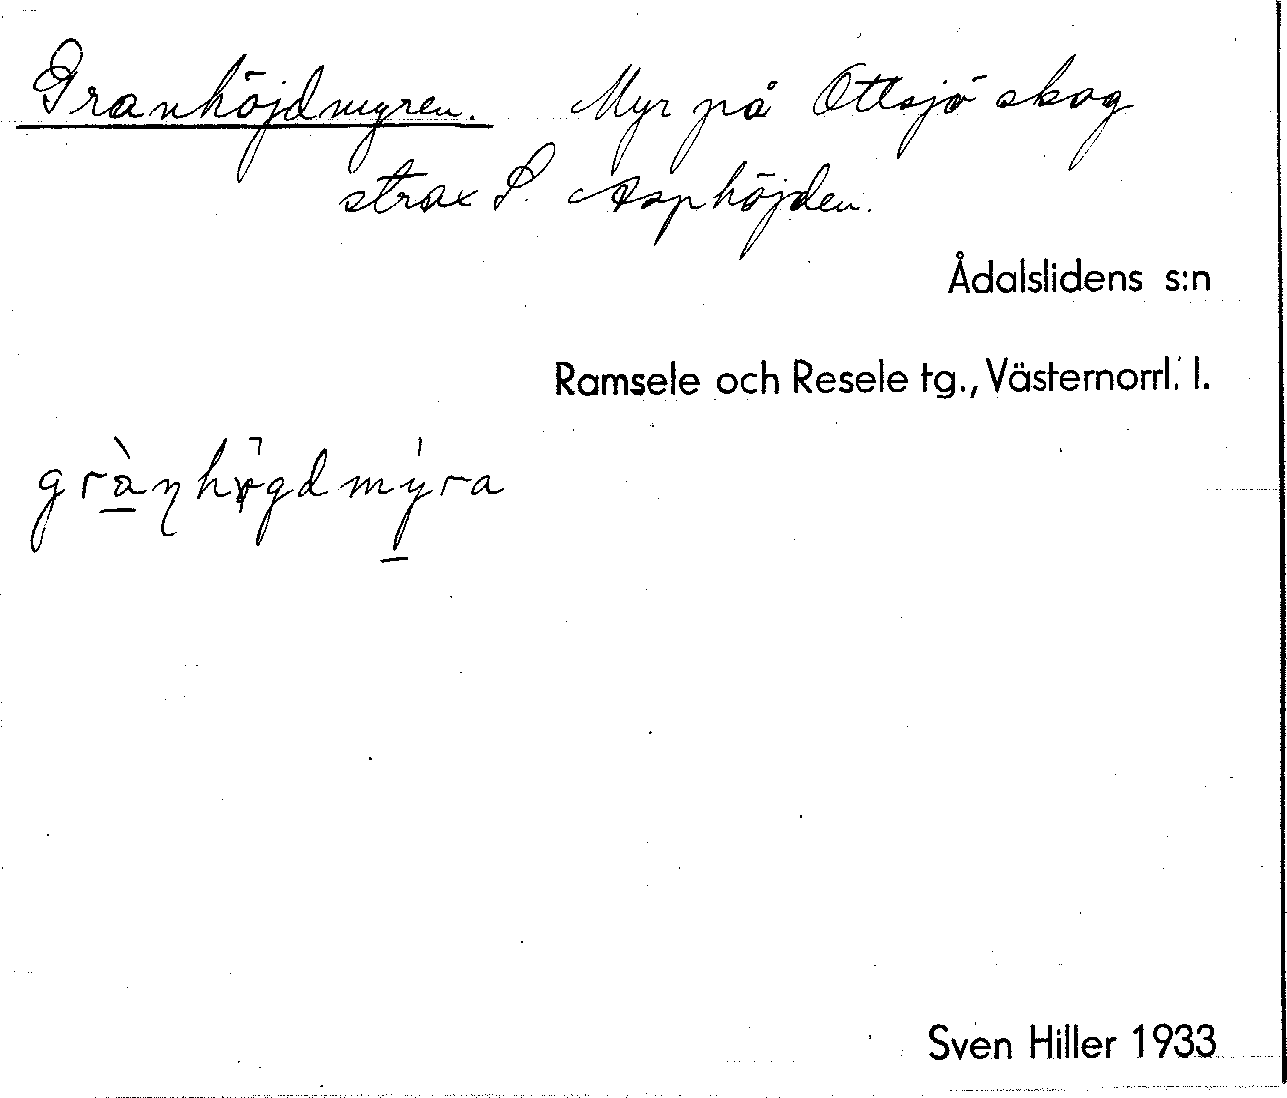 Granhöjdmyren. Myr på Ottsjö skog
strax S. Asphöjden.
Ådalslidens s:n
Ramsele och Resele tg., Västernorrl. l.
Sven Hiller 1933